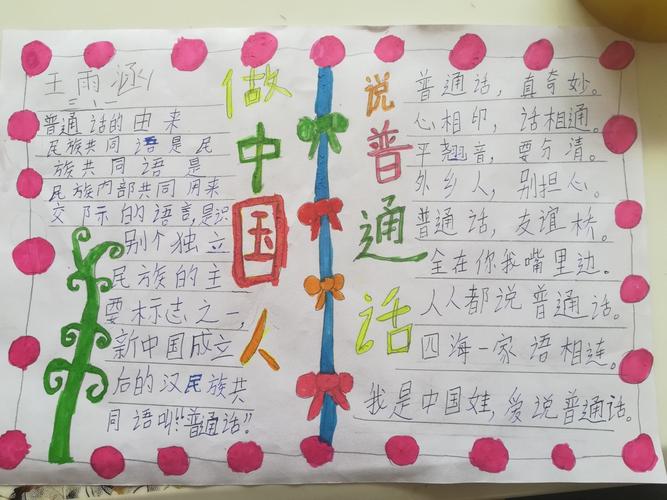 王雨涵
三、一
普通话的由来
民族共同语是民
族共同语是
民族内部共同用来
交际的语言,是识
别个独立
民族的主
要标志之一,
新中国成立
后的汉民族共
同语叫"普通话"!
做中国人
说普通话
普通话,真奇妙。
心相印,话相通。
平翘音,要分清。
外乡人,别担心。
普通话,友谊桥。
全在你我嘴里边。
人人都说普通话。
四海一家语相连。
我是中国娃,爱说普通话。